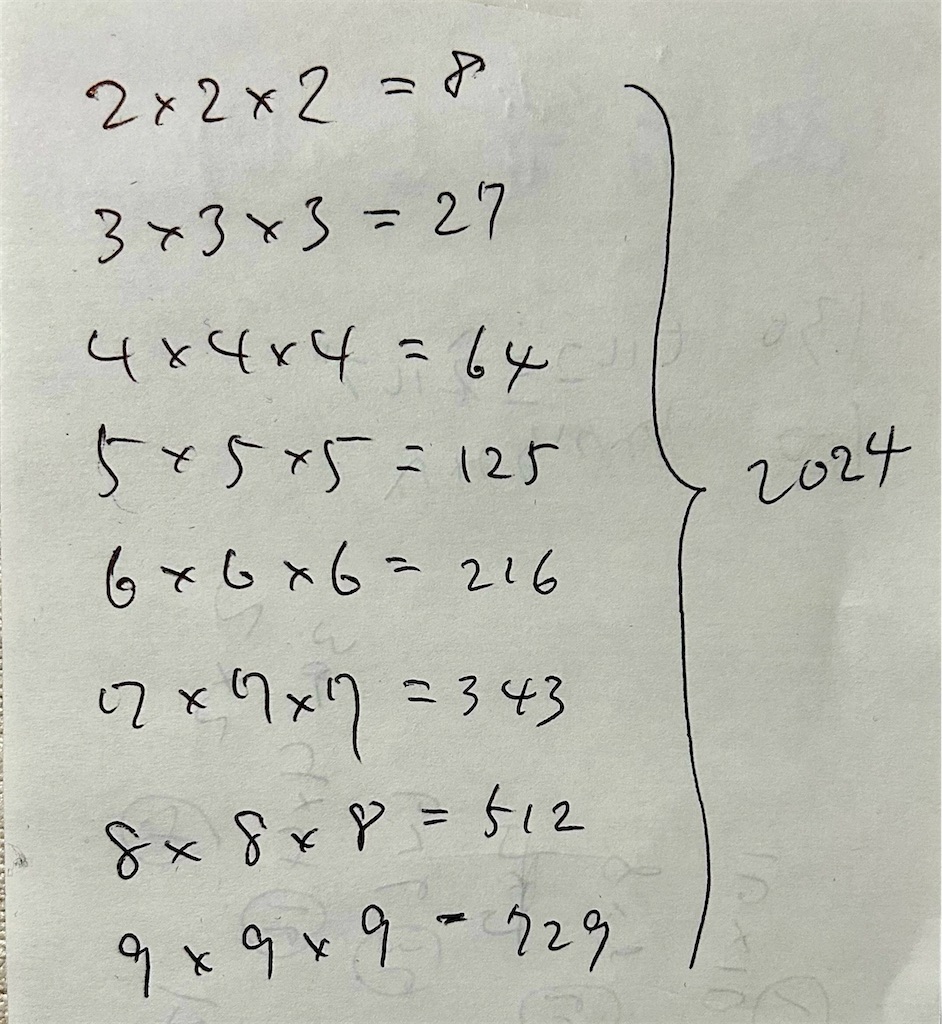 2 × 2 × 2 = 8
3 × 3 × 3 = 27
4 × 4 × 4 = 64
5 × 5 × 5 = 125
2024
6 × 6 × 6 = 216
7 × 7 × 7 = 343
8 × 8 × 8 = 512
9 × 9 × 9 = 729